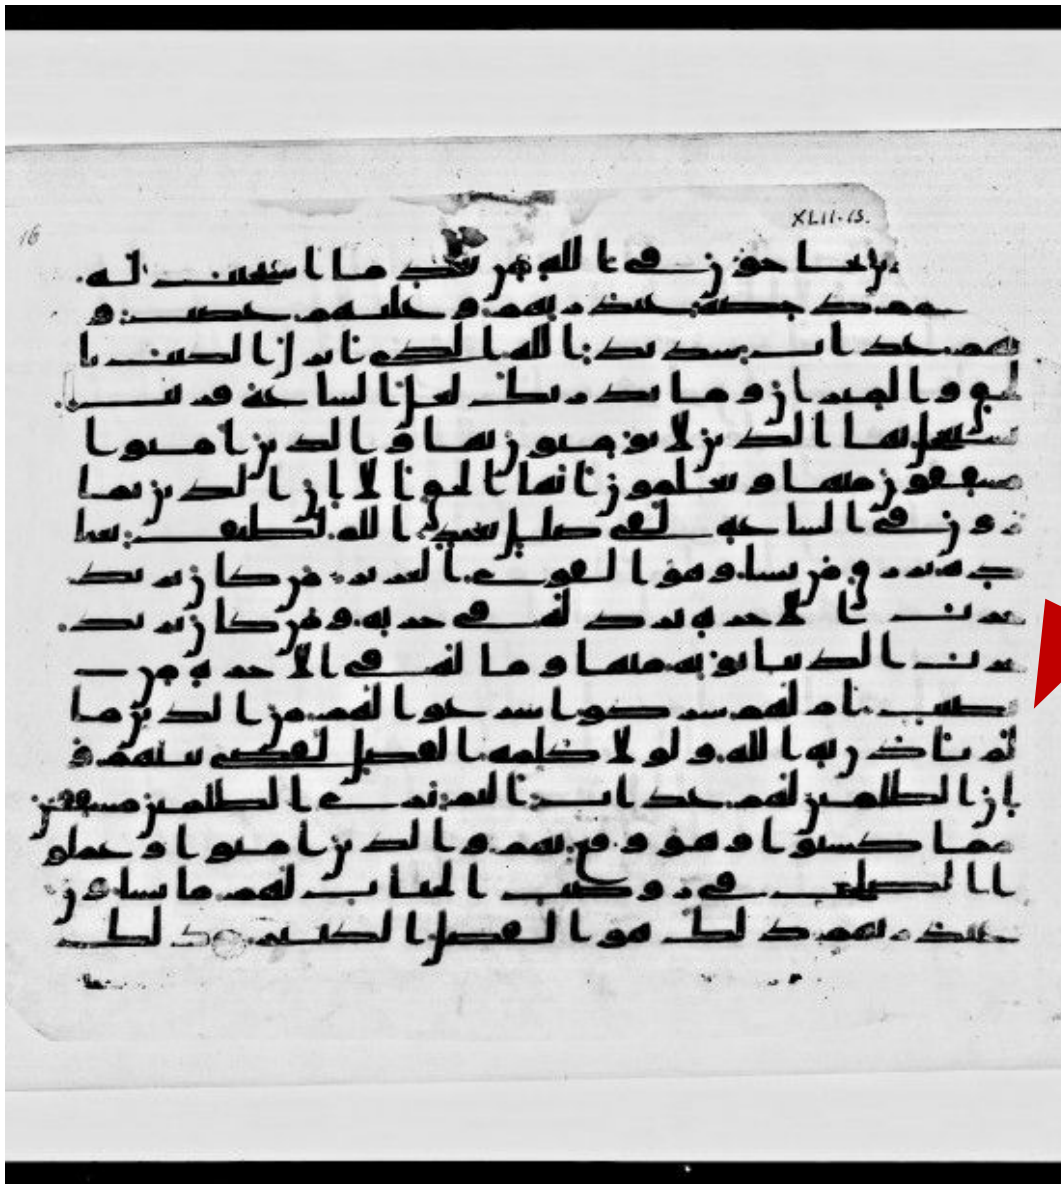 16
XLII-15.
يحاجون في الله من بعد ما استجيب له
حجتهم داحضة عند ربهم وعليهم غضب و
لهم عذاب شديد الله الذي انزل الكتب با
لحق والميزان وما يدريك لعل الساعة قريب
يستعجل بها الذين لا يؤمنون بها والذين امنوا
مشفقون منها ويعلمون انها الحق الا ان الذين يما
رون في الساعة لفي ضلل بعيد الله لطيف بعبا
ده يرزق من يشا وهو القوي العزيز من كان يريد
حرث الاخرة نزد له في حرثه ومن كان يريد
حرث الدنيا نؤته منها وما له في الاخرة من
نصيب ام لهم شركوا شرعوا لهم من الدين ما
لم ياذن به الله ولولا كلمة الفصل لقضي بينهم و
ان الظلمين لهم عذاب اليم ترى الظلمين مشفقين
مما كسبوا وهو وقع بهم والذين امنوا وعملو
ا الصلحت في روضت الجنات لهم ما يشاون
عند ربهم ذلك هو الفضل الكبير ذلك